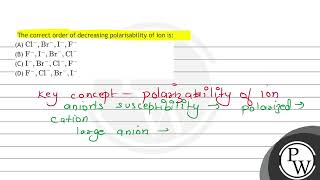 The correct order of decreasing polarisability of ion is:
(A) Cl⁻, Br⁻, I⁻, F⁻
(B) F⁻, I⁻, Br⁻, Cl⁻
(C) I⁻, Br⁻, Cl⁻, F⁻
(D) F⁻, Cl⁻, Br⁻, I⁻
Key concept – polarizability of Ion
anions susceptibility → polarized →
cation
large anion →
PW